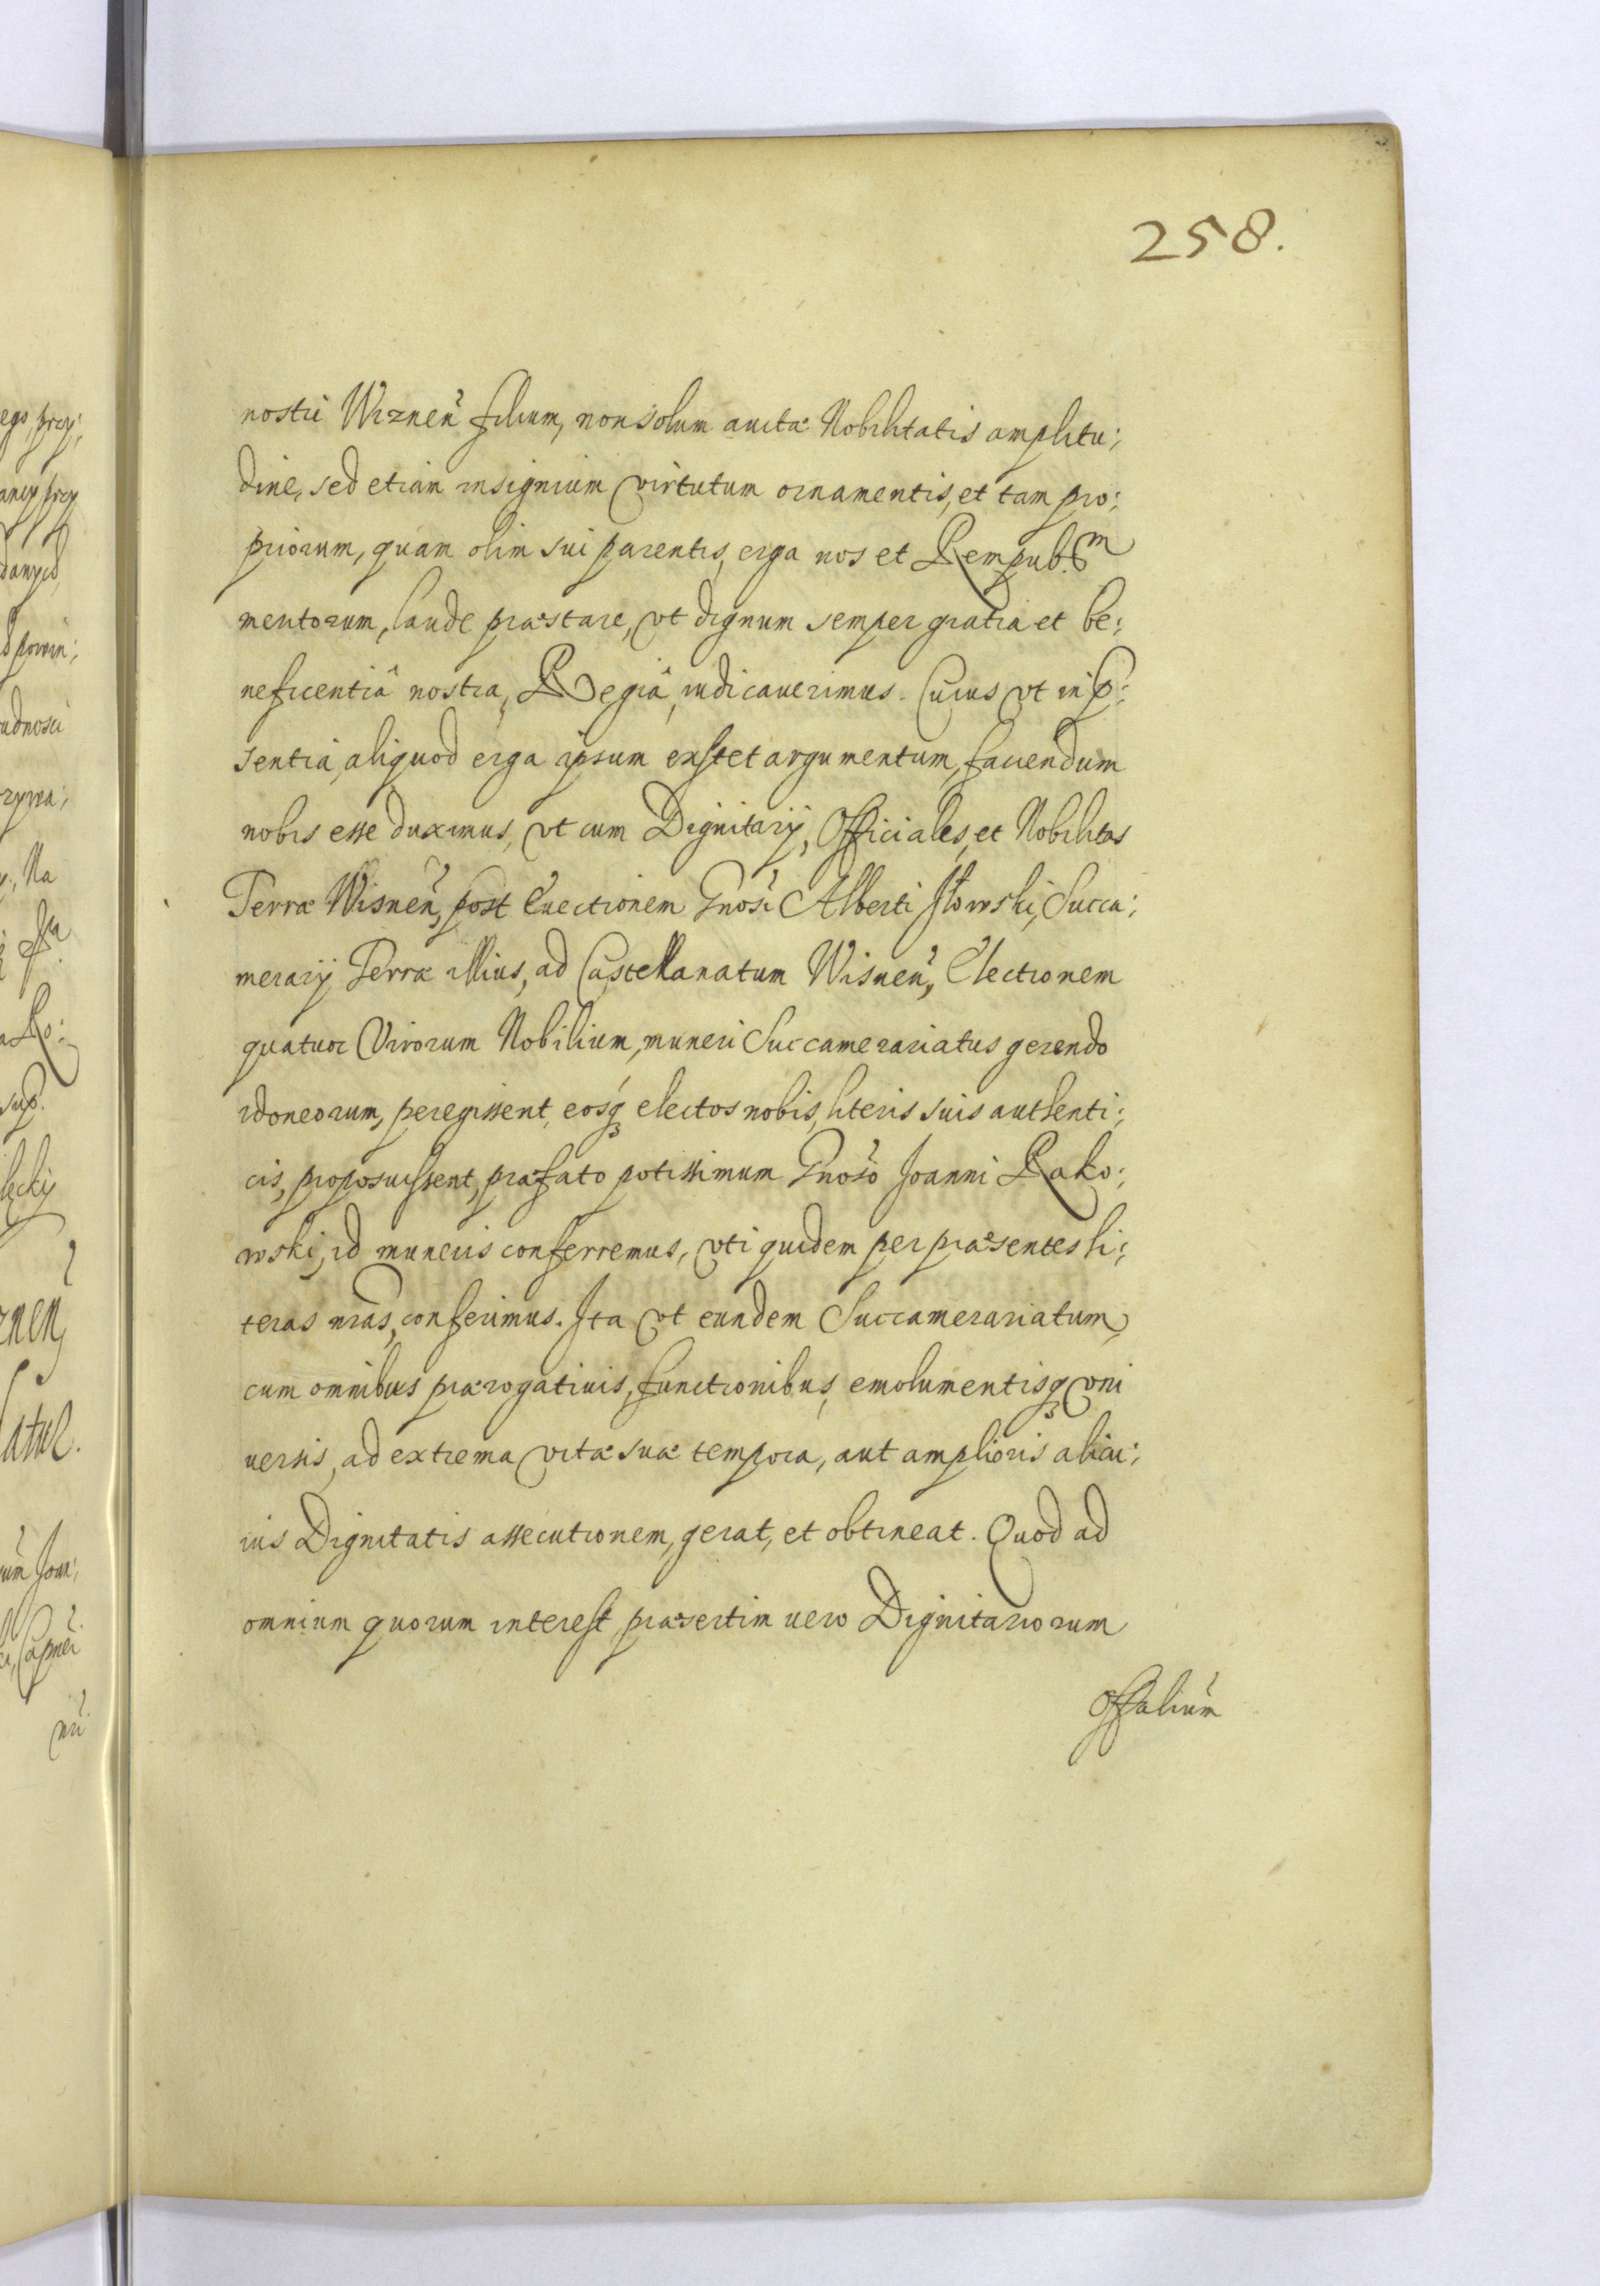 258.
nostri Wiznen̄ filium, non solum auitæ Nobilitatis amplitu:
dine, sed etiam insignium virtutum ornamentis, et tam pro:
priorum, quam olim sui parentis, erga nos et Rempub.m
mentorum, laude præstare, vt dignum semper gratia et be:
neficentiâ nostra, Regiâ, iudicauerimus. Cuius vt in p̄:
sentia, aliquod erga ipsum exstet argumentum, faciendum
nobis esse duximus, vt cum Dignitarij, Officiales, et Nobilitas
Terræ Wisnen̄, post Euectionem Gnosi Alberti Iłowski, Succa:
merarij Terræ illius, ad Castellanatum Wisnen̄, Electionem
quatuor Virorum Nobilium, muneri Succamerariatus gerendo
idoneorum, peregissent, eosq3 electos nobis, literis suis authenti:
cis, proposuissent, præfato potissimum Gnoso Joanni Rako:
wski, id muneris conferremus, vti quidem per præsentes li:
teras nras, conferimus. Ita vt eundem Succamerariatum,
cum omnibus prærogatiuis, functionibus, emolumentisq3 vni
uersis, ad extrema vitæ suæ tempora, aut amplioris alicu:
ius Dignitatis assecutionem, gerat, et obtineat. Quod ad
omnium quorum interest, præsertim uero Dignitariorum
Offalium